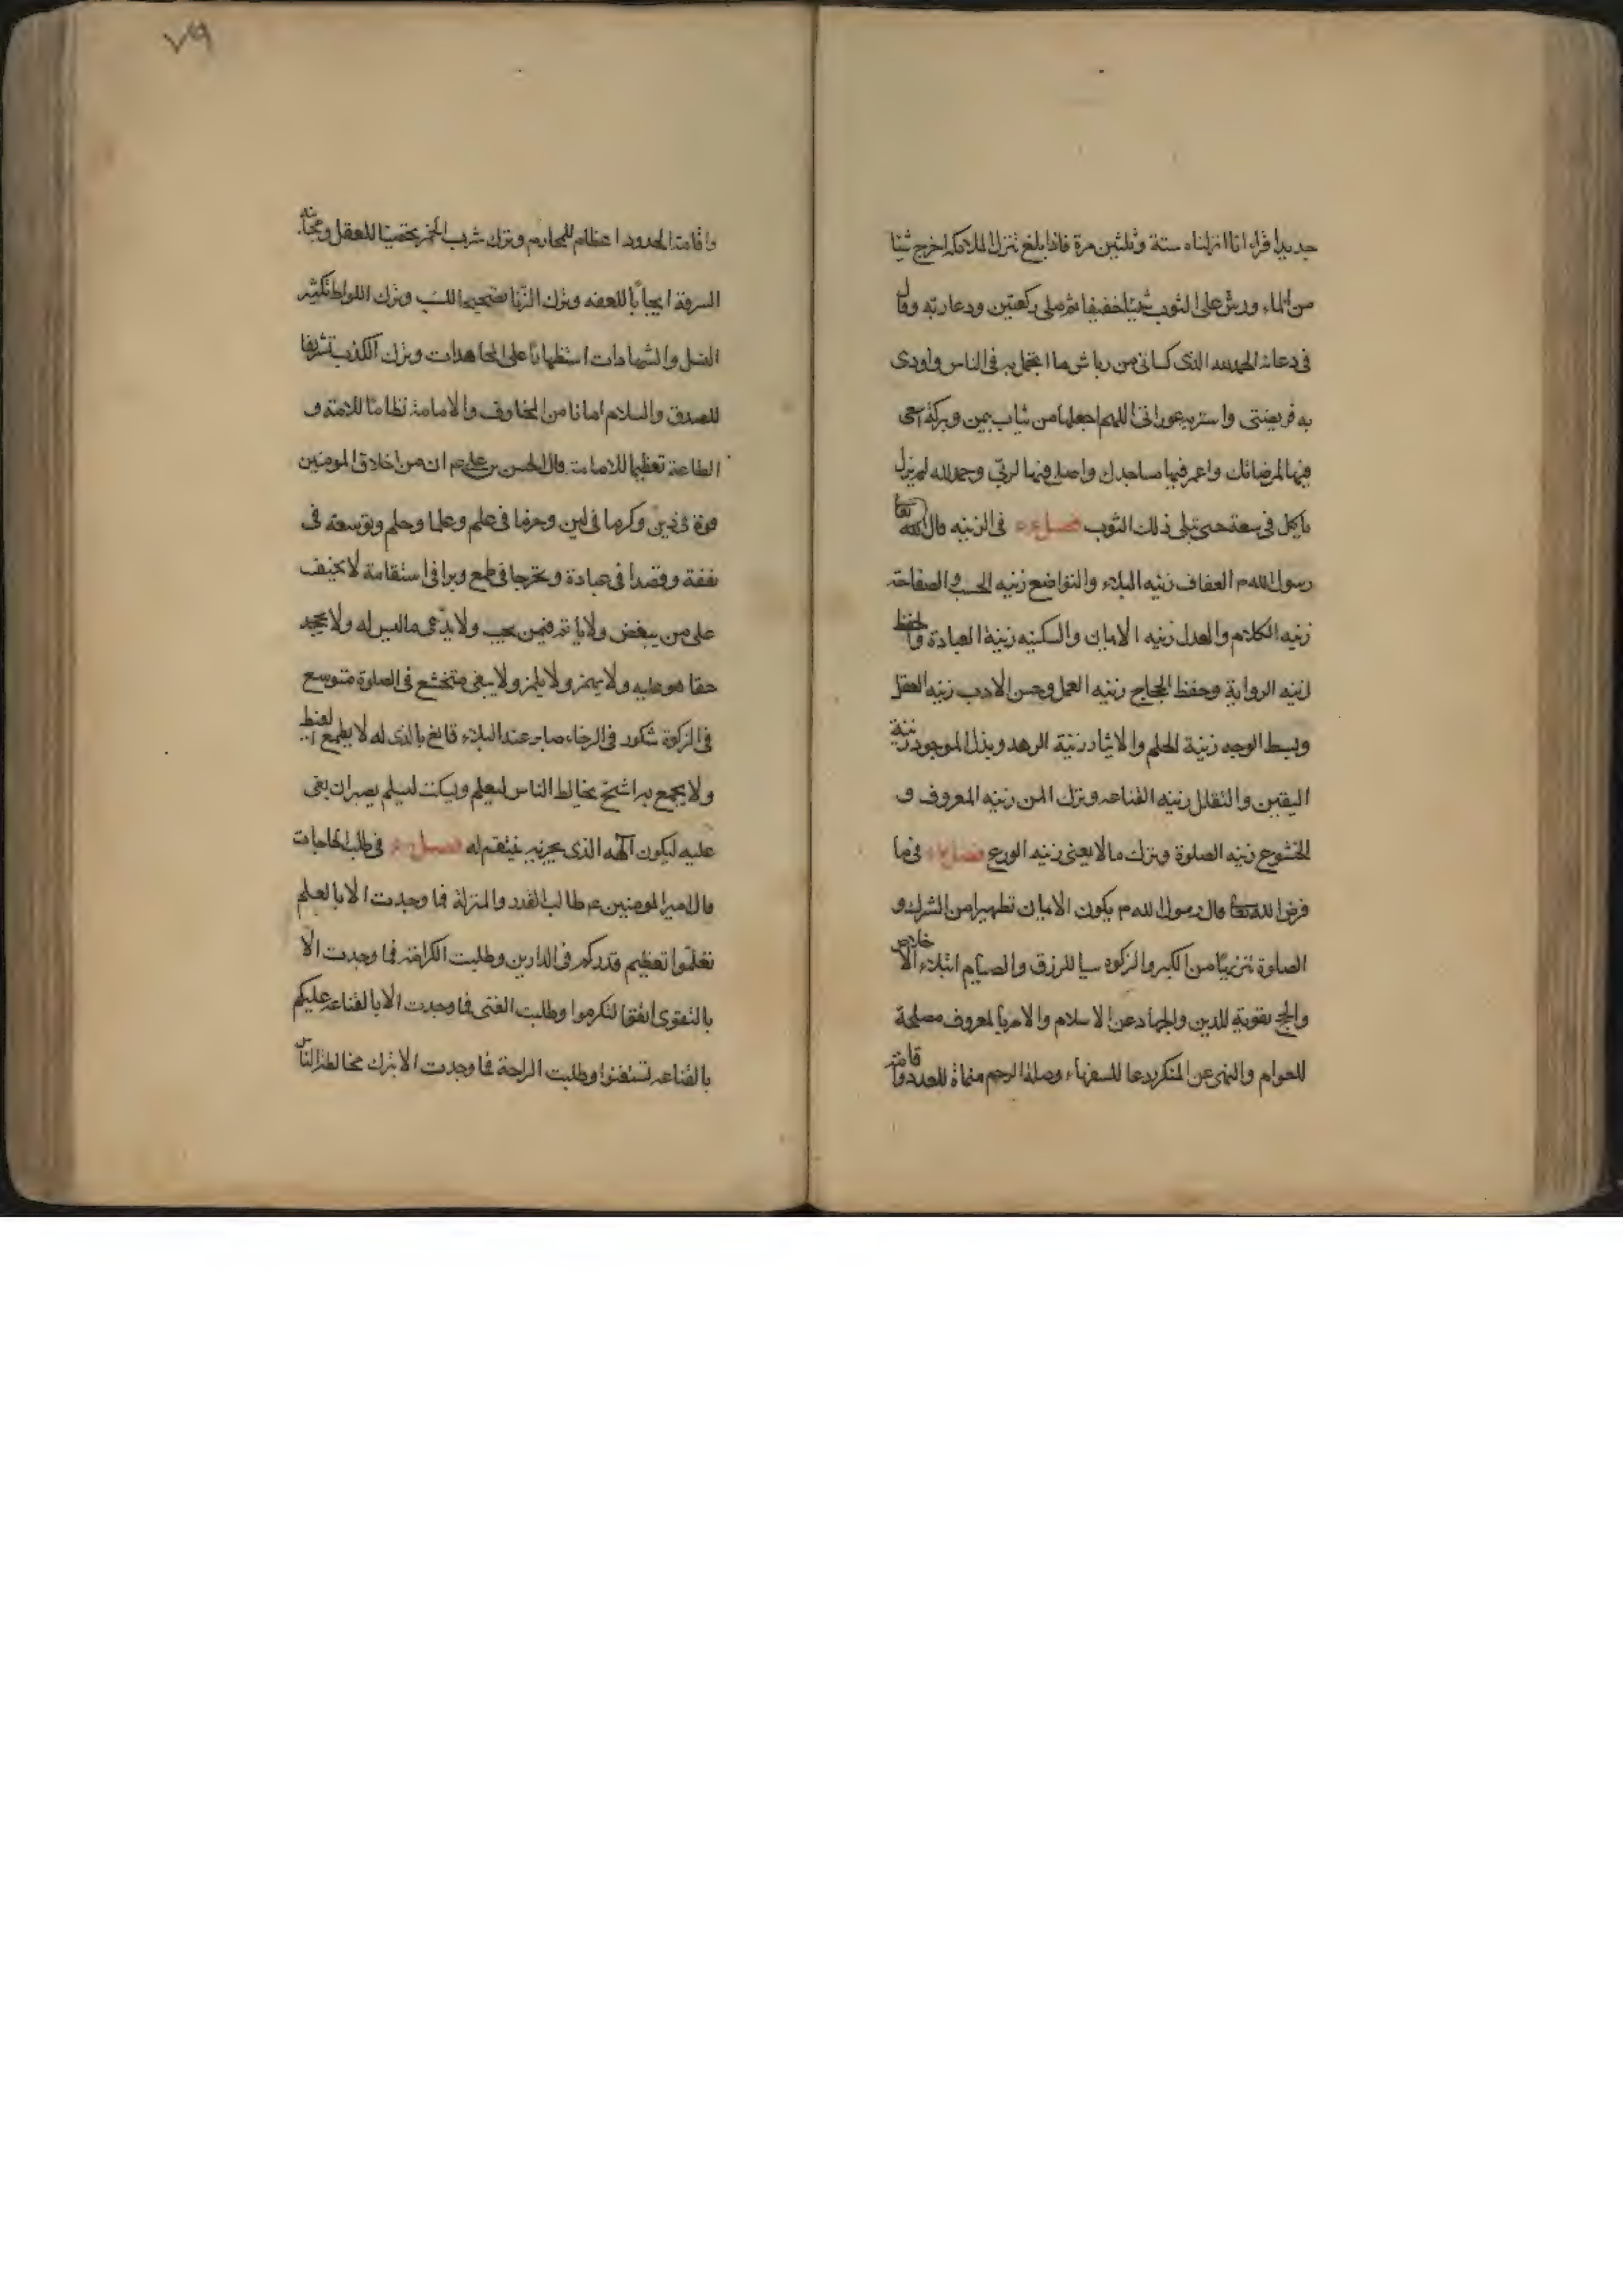 جديدا قراء انا انزلناه ستة وثلثين مرة فاذا بلغ تنزل الملائكه اخرج شيئا
من الماء ورش على الثوب شيئا خفيفا ثم صلى ركعتين ودعا ربه وقال
فى دعائه الحمدلله الذى كسانى من رياش ما اتجمل به فى الناس واودى
به فريضتى واستر به عورتى اللهم اجعلها من ثياب يمن وبركة اسعى
فيها لمرضاتك واعمر فيها مساجدك واصلى فيها لربى وحمد لله لم يزل
ياكل فى سعة حتى تبلى ذلك الثوب فصل فى الزينه قال
رسول الله م العفاف زينه البلاء والتواضع زينه الحسب و الفصاحة
زينه الكلام والعدل زينه الايمان والسكينه زينة العبادة والحفظ
زينه الرواية وحفظ الحجاج زينه العلم وحسن الادب زينه العقل
وبسط الوجه زينة الحلم والايثار زينة الزهد وبذل الموجود زينة
اليقين والتقلل زينه القناعه وترك المن زينه المعروف و
الخشوع زينه الصلوة وترك ما لا يعنى زينه الورع فصل فى ما
فرض الله تعا قال رسول الله م يكون الايمان تطهيرا من الشرك و
الصلوة تنزيها من الكبر والزكوة سببا للرزق والصيام ابتلاء الاخلاص
والحج تقوية للدين والجهاد عن الاسلام والامر بالمعروف مصلحة
للعوام والنهى عن المنكر ردعا للسفهاء وصلة الرحم منماة للعدد واقامة
٧٩
واقامة الحدود اعظام للمحارم وترك شرب الخمر تحصينا للعقل ومجانبه
السرقة ايجابا للعفه وترك الزنا تصحيحا للنسب وترك اللواط تكثير
النسل والشهادات استظهارا على المجاهدات وترك الكذب تشريفا
للصدق والسلام امانا من المخاوف والامامة نظاما للامة و
الطاعة تعظيما للامامة قال الحسن بن على عم ان من اخلاق المومنين
قوة فى دين وكرما فى لين وحزما فى علم وعلما وحلم وتوسعة فى
نفقة وقصدا فى عبادة وتحرجا فى طمع وبرا فى استقامة لا يحيف
على من يبغض ولا ياثم فيمن يحب ولا يدعى ما ليس له ولا يجحد
حقا هو عليه ولا يهمز ولا يلمز ولا يبغى متخشع فى الصلوة متوسع
فى الزكوة شكور فى الرخاء صابر عند البلاء قانع بالذى له لا يطمع
ولا يجمع به الشح يخالط الناس ليعلم ويسكت ليسلم يصبر ان بغى
عليه ليكون الهه الذى يجزيه ينتقم له فصل فى طلب الحاجات
قال امير المومنين عم طالب القدر والمنزلة فما وجدت الا بالعلم
تعلموا تعظيم قدركم فى الدارين وطلبت الكرامة فما وجدت الا
بالتقوى اتقوا لتكرموا وطلبت الغنى فما وجدت الا بالقناعه عليكم
بالقناعه تستغنوا وطلبت الراحة فما وجدت الا بترك مخالطة الناس